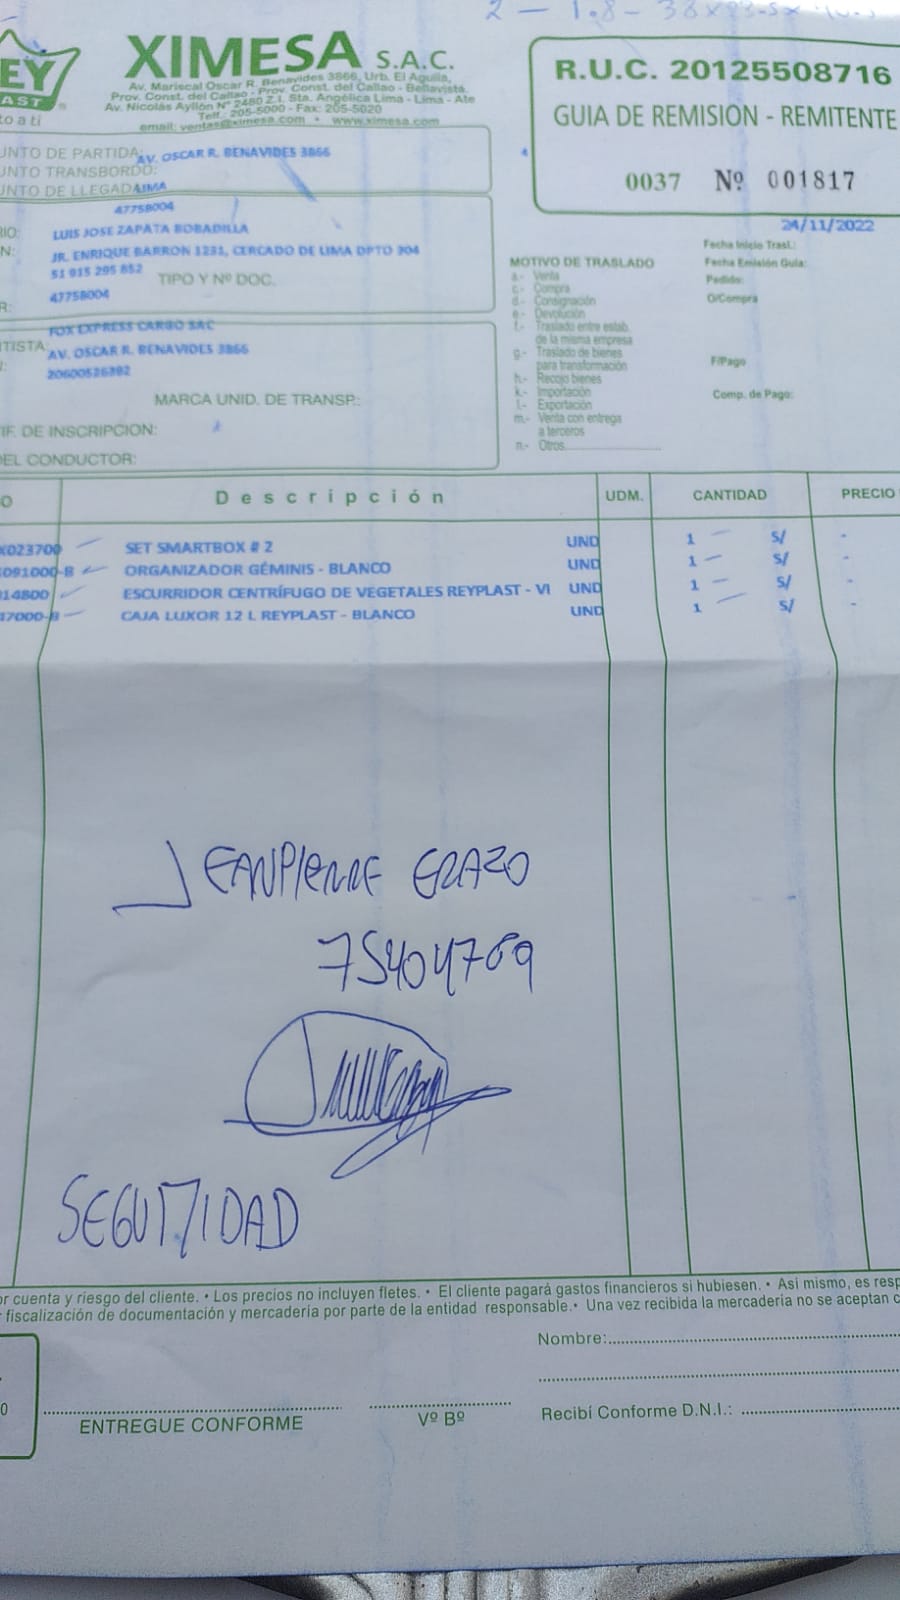 EY
AST ®
to a ti
XIMESA S.A.C.
Av. Mariscal Oscar R. Benavides 3866, Urb. El Aguila,
Prov. Const. del Callao - Prov. Const. del Callao - Bellavista.
Av. Nicolás Ayllón Nº 2480 Z.I. Sta. Angélica Lima - Lima - Ate
Telf.: 205-5000 - Fax: 205-5020
email: ventas@ximesa.com • www.ximesa.com
R.U.C. 20125508716
GUIA DE REMISION - REMITENTE
0037 Nº 001817
UNTO DE PARTIDA: AV. OSCAR R. BENAVIDES 3866
UNTO TRANSBORDO:
UNTO DE LLEGADA: LIMA
47758004
RIO: LUIS JOSE ZAPATA BOBADILLA
N: JR. ENRIQUE BARRON 1231, CERCADO DE LIMA DPTO 904
51 915 295 852
TIPO Y Nº DOC.
47758004
R:
FOX EXPRESS CARGO SAC
TISTA: AV. OSCAR R. BENAVIDES 3866
20600526392
MARCA UNID. DE TRANSP.:
IF. DE INSCRIPCION:
EL CONDUCTOR:
24/11/2022
Fecha Inicio Trasl.:
Fecha Emisión Guia:
Pedido:
O/Compra
F/Pago
Comp. de Pago:
MOTIVO DE TRASLADO
a.- Venta
c.- Compra
d.- Consignación
e.- Devolución
f.- Traslado entre estab.
de la misma empresa
g.- Traslado de bienes
para transformación
h.- Recojo bienes
k.- Importación
l.- Exportación
m.- Venta con entrega
a terceros
n.- Otros
O Descripción UDM. CANTIDAD PRECIO
X023700 SET SMARTBOX # 2 UND 1 S/ -
091000-B ORGANIZADOR GÉMINIS - BLANCO UND 1 S/ -
14800 ESCURRIDOR CENTRÍFUGO DE VEGETALES REYPLAST - VI UND 1 S/ -
37000-B CAJA LUXOR 12 L REYPLAST - BLANCO UND 1 S/ -
JEANPIERRE ERAZO
75404769
SEGURIDAD
or cuenta y riesgo del cliente. • Los precios no incluyen fletes. • El cliente pagará gastos financieros si hubiesen. • Asi mismo, es resp
fiscalización de documentación y mercadería por parte de la entidad responsable. • Una vez recibida la mercadería no se aceptan c
Nombre:
0
ENTREGUE CONFORME
Vº Bº
Recibí Conforme D.N.I.: